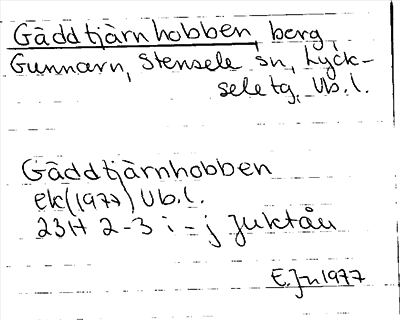 Gäddtjärnhobben, berg
Gunnarn, Stensele sn, Lyck-
sele tg, Vb.l.
Gäddtjärnhobben
ek (1977) Vb.l.
23H 2-3 i-j Juktån
E. Jn 1977